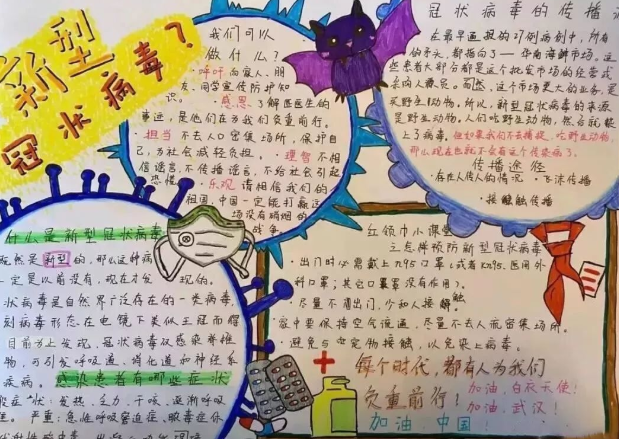 新型
冠状病毒?
我们可以
做什么?
·呼吁向家人、朋
友、同学宣传防护知
识。·感恩 了解医医生的
事迹,是他们在为我们负重前行。
·担当 不去人口密集场所,保护自
己,为社会减轻负担。·理智 不相
信谣言,不传播谣言,不给社会引起
恐慌·乐观 请相信我们的
祖国,中国一定能打赢这
场没有硝烟的
战争。
冠状病毒的传播
在最早通报的27例病例中,所有
的矛头都指向了——华南海鲜市场。这
些患者大部分都是这个批发市场的经营或
采购人员。而然,这个市场更大的业务,是
买野生动物。所以,新型冠状病毒的来源
是野生动物,人们吃野生动物,然后就染
上了病毒。但如果我们不去捕捉、吃野生动物,
那么现在也就不会有这个传染病了。
传播途径
·存在人传人的情况 ·飞沫传播
·接触传播
什么是新型冠状病毒
既然是新型的,那么这种病
一定是以前没有,现在才发现的。
状病毒是自然界广泛存在的一类病毒,
刻病毒形态在电镜下类似王冠而
目前为止发现,冠状病毒仅感染脊椎
物,可引发呼吸道、消化道和神经系
疾病。感染患者有哪些症状
症状:发热、乏力、干咳、逐渐呼吸
严重:急性呼吸窘迫症、脓毒症休
红领巾小课堂
三点牌预防新型冠状病毒
·出门时必需戴上n95口罩(或者Kn95、医用外
科口罩;其它口罩没有作用)。
·尽量不用出门,少和人接触
家中要保持空气流通,尽量不去人流密集场所。
·避免与定物接触,以免染上病毒。
每个时代,都有人为我们
负重前行!
加油,白衣天使!
加油,武汉!
加油,中国!